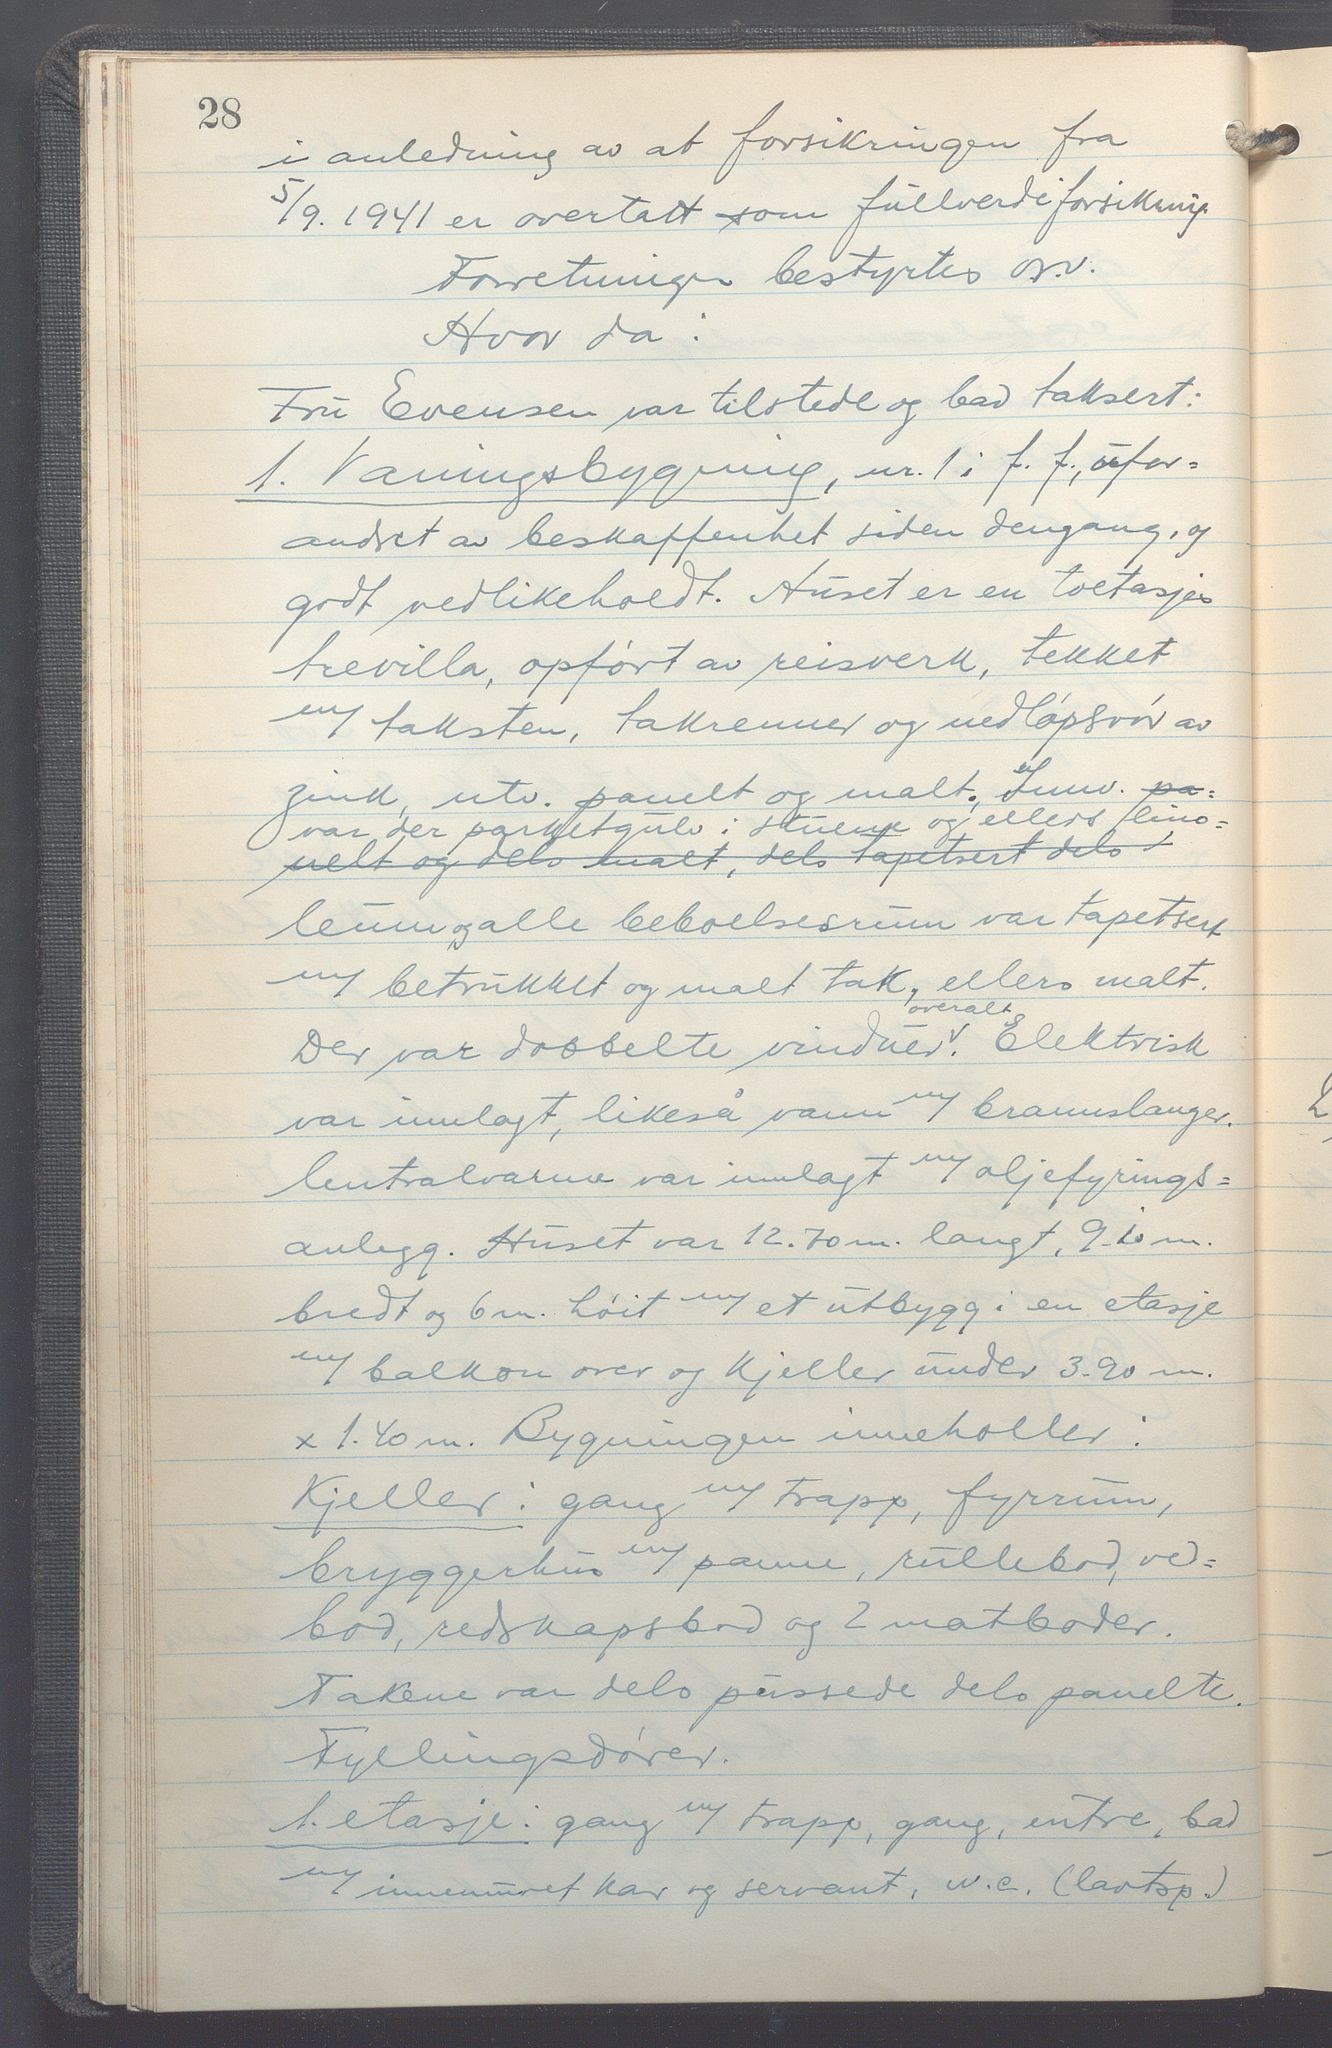 28
i anledning av at forsikringen fra
5/9. 1941 er overtatt som fullverdiforsikring
Forretningen bestyrtes osv.
Hvor da:
Fru Evensen var tilstede og bad taksert:
1. Vaningsbygning, nr. 1 i f. f., ufor=
andret av beskaffenhet siden dengang, og
godt vedlikeholdt. Huset er en toetasjes
trevilla, opført av reisverk, tekket
m/ taksten, takrenner og nedløpsrør av
zink, utv. panelt og malt. Innv. pa=
var der parketgulv i stuene og ellers lino=
nelt og dels malt, dels tapetsert dels
leum og alle beboelsesrum var tapetsert
m/ betrukket og malt tak, ellers malt.
overalt
Der var dobbelte vinduer. Elektrisk
var innlagt, likeså vann m/ brannslanger.
Centralvarme var innlagt m/ oljefyrings=
anlegg. Huset var 12.70 m. langt, 9.10 m.
bredt og 6 m. høit m/ et utbygg i en etasje
m/ balkon over og kjeller under 3.90 m.
x 1.40 m. Bygningen inneholder:
Kjeller: gang m/ trapp, fyrrum,
bryggerhus m/ panne, rullebod, ved=
bod, redskapsbod og 2 matboder.
Takene var dels pussede dels panelte.
Fyllingsdører.
1. etasje: gang m/ trapp, gang, entre, bad
m/ innemuret kar og servant, w.c. (lavtsp.)